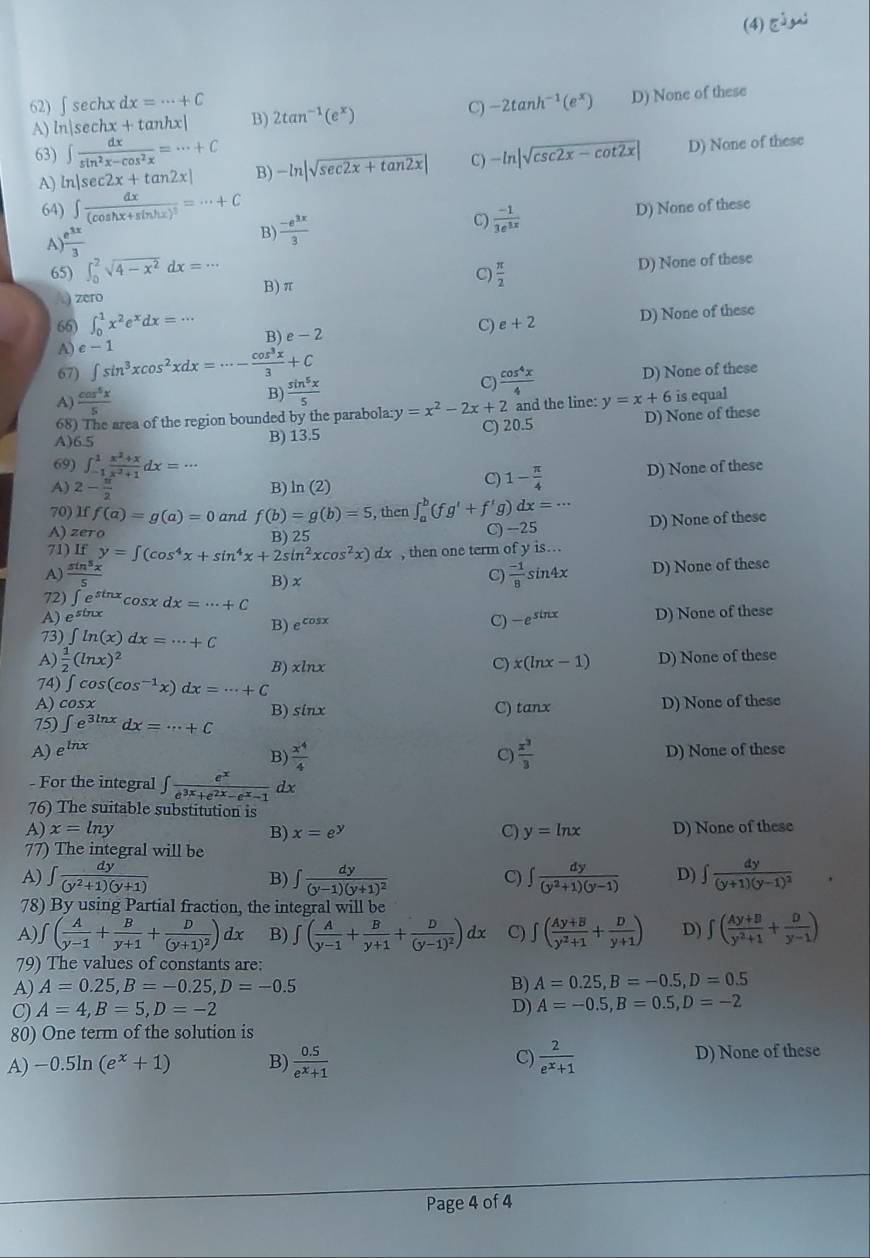 نموذج (4)
62) ∫ sechx dx = ⋯ + C
A) ln|sechx + tanhx| B) 2tan⁻¹(eˣ) C) −2tanh⁻¹(eˣ) D) None of these
63) ∫ dx/(sin²x−cos²x) = ⋯ + C
A) ln|sec2x + tan2x| B) −ln|√(sec2x + tan2x)| C) −ln|√(csc2x − cot2x)| D) None of these
64) ∫ dx/(coshx+sinhx)³ = ⋯ + C
A) e³ˣ/3 B) −e³ˣ/3 C) −1/(3e³ˣ) D) None of these
65) ∫₀² √(4 − x²) dx = ⋯
A) zero B) π C) π/2 D) None of these
66) ∫₀¹ x²eˣdx = ⋯
A) e − 1 B) e − 2 C) e + 2 D) None of these
67) ∫ sin³xcos²xdx = ⋯ − cos³x/3 + C
A) cos⁵x/5 B) sin⁵x/5 C) cos⁴x/4 D) None of these
68) The area of the region bounded by the parabola:y = x² − 2x + 2 and the line: y = x + 6 is equal
A)6.5 B) 13.5 C) 20.5 D) None of these
69) ∫₋₁¹ (x²+x)/(x²+1) dx = ⋯
A) 2 − π/2 B) ln (2) C) 1 − π/4 D) None of these
70) If f(a) = g(a) = 0 and f(b) = g(b) = 5, then ∫ₐᵇ (fg′ + f′g) dx = ⋯
A) zero B) 25 C) −25 D) None of these
71) If y = ∫(cos⁴x + sin⁴x + 2sin²xcos²x) dx , then one term of y is…
A) sin⁵x/5 B) x C) −1/8 sin4x D) None of these
72) ∫ e^sinx cosx dx = ⋯ + C
A) e^sinx B) e^cosx C) −e^sinx D) None of these
73) ∫ ln(x) dx = ⋯ + C
A) 1/2 (lnx)² B) xlnx C) x(lnx − 1) D) None of these
74) ∫ cos(cos⁻¹x) dx = ⋯ + C
A) cosx B) sinx C) tanx D) None of these
75) ∫ e^3lnx dx = ⋯ + C
A) e^lnx B) x⁴/4 C) x³/3 D) None of these
- For the integral ∫ eˣ/(e³ˣ+e²ˣ−eˣ−1) dx
76) The suitable substitution is
A) x = lny B) x = eʸ C) y = lnx D) None of these
77) The integral will be
A) ∫ dy/((y²+1)(y+1)) B) ∫ dy/((y−1)(y+1)²) C) ∫ dy/((y²+1)(y−1)) D) ∫ dy/((y+1)(y−1)²)
78) By using Partial fraction, the integral will be
A)∫(A/(y−1) + B/(y+1) + D/(y+1)²) dx B) ∫(A/(y−1) + B/(y+1) + D/(y−1)²) dx C) ∫((Ay+B)/(y²+1) + D/(y+1)) D) ∫((Ay+B)/(y²+1) + D/(y−1))
79) The values of constants are:
A) A = 0.25, B = −0.25, D = −0.5 B) A = 0.25, B = −0.5, D = 0.5
C) A = 4, B = 5, D = −2 D) A = −0.5, B = 0.5, D = −2
80) One term of the solution is
A) −0.5ln (eˣ + 1) B) 0.5/(eˣ+1) C) 2/(eˣ+1) D) None of these
Page 4 of 4